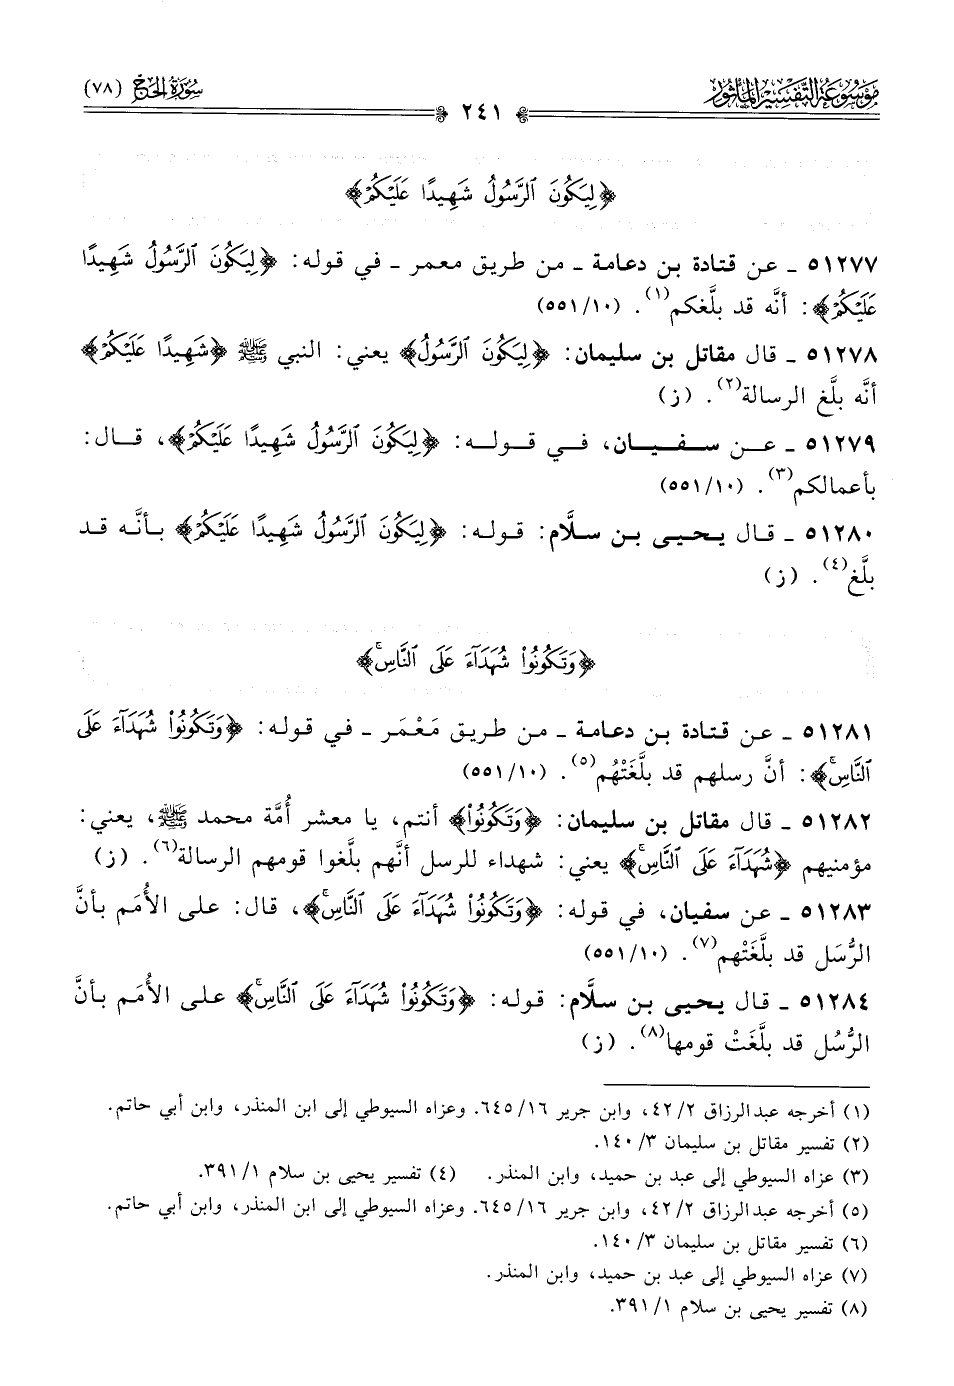 موسوعة التفسير المأثور
سورة الحج (٧٨)
٢٤١
﴿لِيَكُونَ ٱلرَّسُولُ شَهِيدًا عَلَيْكُمْ﴾
٥١٢٧٧ ـ عن قتادة بن دعامة ـ من طريق معمر ـ في قوله: ﴿لِيَكُونَ ٱلرَّسُولُ شَهِيدًا
عَلَيْكُمْ﴾: أنَّه قد بلَّغكم(١). (٥٥١/١٠)
٥١٢٧٨ ـ قال مقاتل بن سليمان: ﴿لِيَكُونَ ٱلرَّسُولُ﴾ يعني: النبي ﷺ ﴿شَهِيدًا عَلَيْكُمْ﴾
أنَّه بلَّغ الرسالة(٢). (ز)
٥١٢٧٩ ـ عن سفيان، في قوله: ﴿لِيَكُونَ ٱلرَّسُولُ شَهِيدًا عَلَيْكُمْ﴾، قال:
بأعمالكم(٣). (٥٥١/١٠)
٥١٢٨٠ ـ قال يحيى بن سلَّام: قوله: ﴿لِيَكُونَ ٱلرَّسُولُ شَهِيدًا عَلَيْكُمْ﴾ بأنَّه قد
بلَّغ(٤). (ز)
﴿وَتَكُونُوا۟ شُهَدَآءَ عَلَى ٱلنَّاسِ ۚ﴾
٥١٢٨١ ـ عن قتادة بن دعامة ـ من طريق مَعْمَر ـ في قوله: ﴿وَتَكُونُوا۟ شُهَدَآءَ عَلَى
ٱلنَّاسِ ۚ﴾: أنَّ رسلهم قد بلَّغَتْهُم(٥). (٥٥١/١٠)
٥١٢٨٢ ـ قال مقاتل بن سليمان: ﴿وَتَكُونُوا۟﴾ أنتم، يا معشر أُمَّة محمد ﷺ، يعني:
مؤمنيهم ﴿شُهَدَآءَ عَلَى ٱلنَّاسِ ۚ﴾ يعني: شهداء للرسل أنَّهم بلَّغوا قومهم الرسالة(٦). (ز)
٥١٢٨٣ ـ عن سفيان، في قوله: ﴿وَتَكُونُوا۟ شُهَدَآءَ عَلَى ٱلنَّاسِ ۚ﴾، قال: على الأُمَم بأنَّ
الرُّسَل قد بلَّغَتْهم(٧). (٥٥١/١٠)
٥١٢٨٤ ـ قال يحيى بن سلَّام: قوله: ﴿وَتَكُونُوا۟ شُهَدَآءَ عَلَى ٱلنَّاسِ ۚ﴾ على الأُمَم بأنَّ
الرُّسُل قد بلَّغَتْ قومها(٨). (ز)
(١) أخرجه عبدالرزاق ٤٢/٢، وابن جرير ٦٤٥/١٦. وعزاه السيوطي إلى ابن المنذر، وابن أبي حاتم.
(٢) تفسير مقاتل بن سليمان ١٤٠/٣.
(٣) عزاه السيوطي إلى عبد بن حميد، وابن المنذر. (٤) تفسير يحيى بن سلام ٣٩١/١.
(٥) أخرجه عبدالرزاق ٤٢/٢، وابن جرير ٦٤٥/١٦. وعزاه السيوطي إلى ابن المنذر، وابن أبي حاتم.
(٦) تفسير مقاتل بن سليمان ١٤٠/٣.
(٧) عزاه السيوطي إلى عبد بن حميد، وابن المنذر.
(٨) تفسير يحيى بن سلام ٣٩١/١.